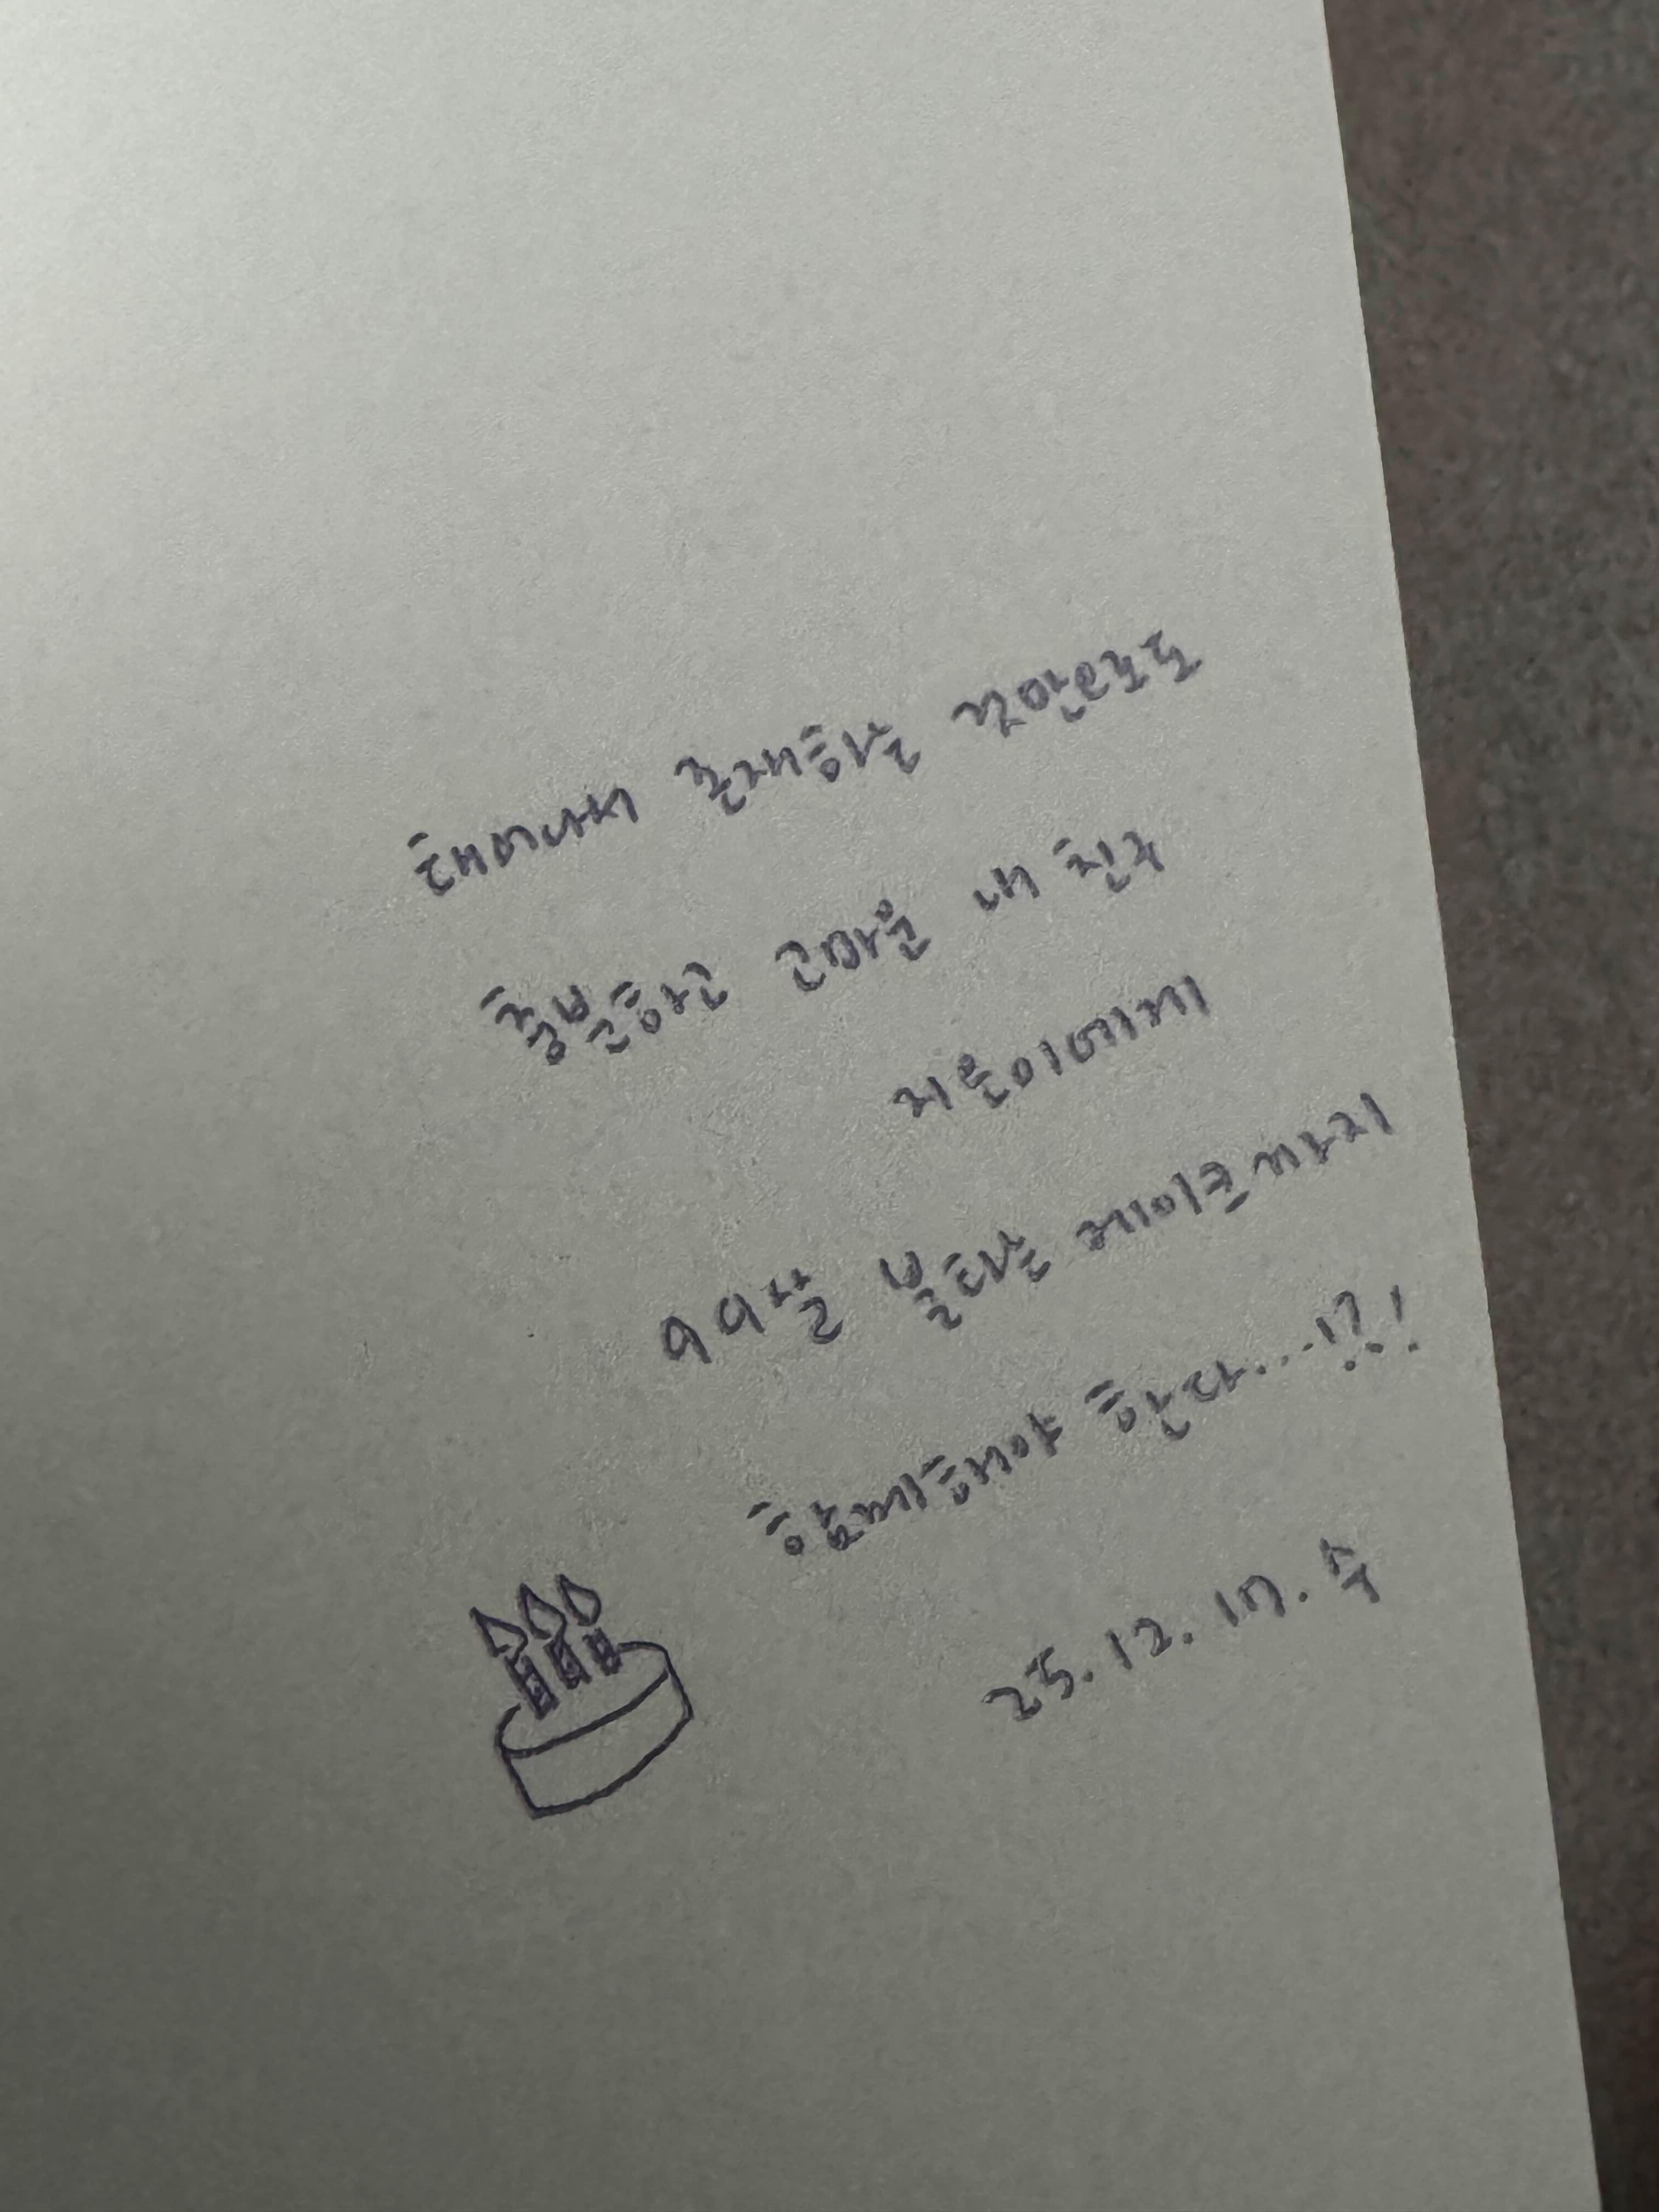 태어나서 존재하는 것만으로도
충분하고 고마운 내 친구
지은이에게
99살 불타는 케이크까지
함께해야 한다...!?!
25. 12. 17. 수